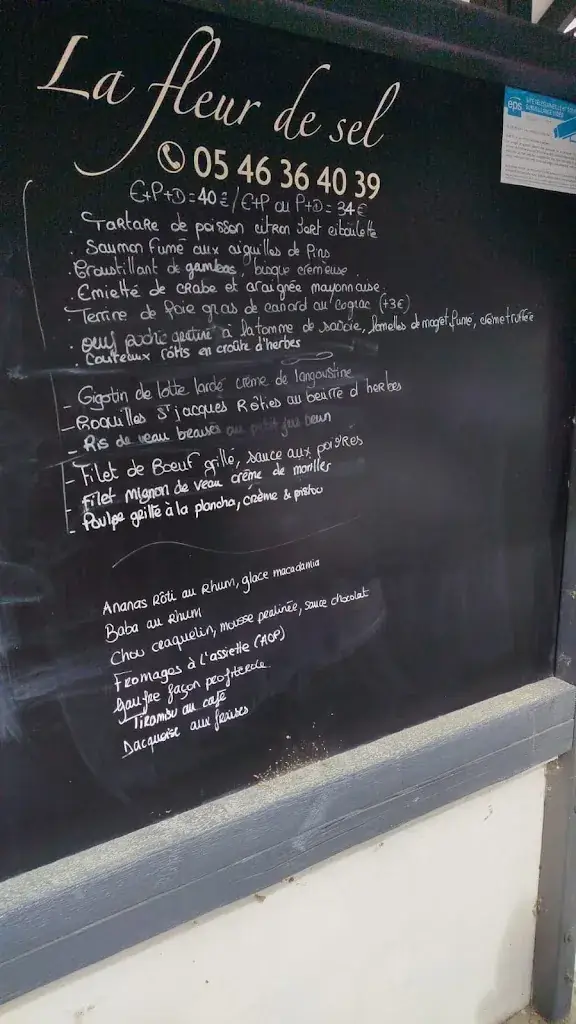 La fleur de sel
05 46 36 40 39
E+P+D = 40 € / E+P ou P+D = 34 €
. Tartare de poisson citron vert ciboulette
. Saumon fumé aux aiguilles de Pins
. Croustillant de gambas, bisque crémeuse
. Emietté de crabe et araignée mayonnaise
. Terrine de foie gras de canard au Cognac (+3€)
. oeuf poché gratiné à la tomme de savoie, lamelles de magret fumé, crème truffée
. Couteaux rôtis en croûte d'herbes
- Gigotin de lotte lardé crème de langoustine
- Coquilles St jacques Rôties au beurre d'herbes
- Ris de veau braisés au petit jus brun
- Filet de Boeuf grillé, sauce aux poivres
- Filet mignon de veau crème de morilles
- Poulpe grillé à la plancha, crème & pistou
Ananas Rôti au Rhum, glace macadamia
Baba au Rhum
Chou craquelin, mousse pralinée, sauce chocolat
Fromages à l'assiette (AOP)
Gaufre façon profiterole
Tiramisu au café
Dacquoise aux fraises
eps